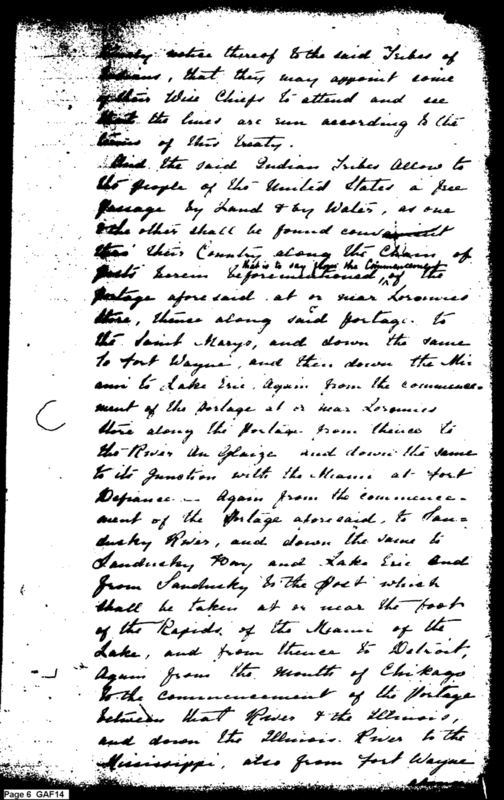 timely notice thereof to the said Tribes of
Indians, that they may appoint some
of their Wise Chiefs to attend and see
that the lines are run according to the
terms of this treaty.
And the said Indian Tribes Allow to
the people of the United States a free
passage by Land & by Water, as one
& the other shall be found convenient
thro' their Country along the Chain of
posts herein beforementioned, that is to say from the Commencement of the
portage aforesaid at or near Loromies
Store, thence along said portage to
the Saint Marys, and down the same
to Fort Wayne, and then down the Mi-
ami to Lake Erie. Again from the commence-
ment of the portage at or near Loromies
Store along the Portage from thence to
the River Au Glaize and down the same
to its Junction with the Miami at Fort
Defiance — Again from the commence-
ment of the Portage aforesaid, to San-
dusky River, and down the same to
Sandusky Bay and Lake Erie and
from Sandusky to the Post which
shall be taken at or near the foot
of the Rapids of the Miami of the
Lake, and from thence to Detroit,
Again from the Mouth of Chikago
to the commencement of the Portage
between that River & the Illinois,
and down the Illinois River to the
Mississippi, also from Fort Wayne
Page 6 GAF14